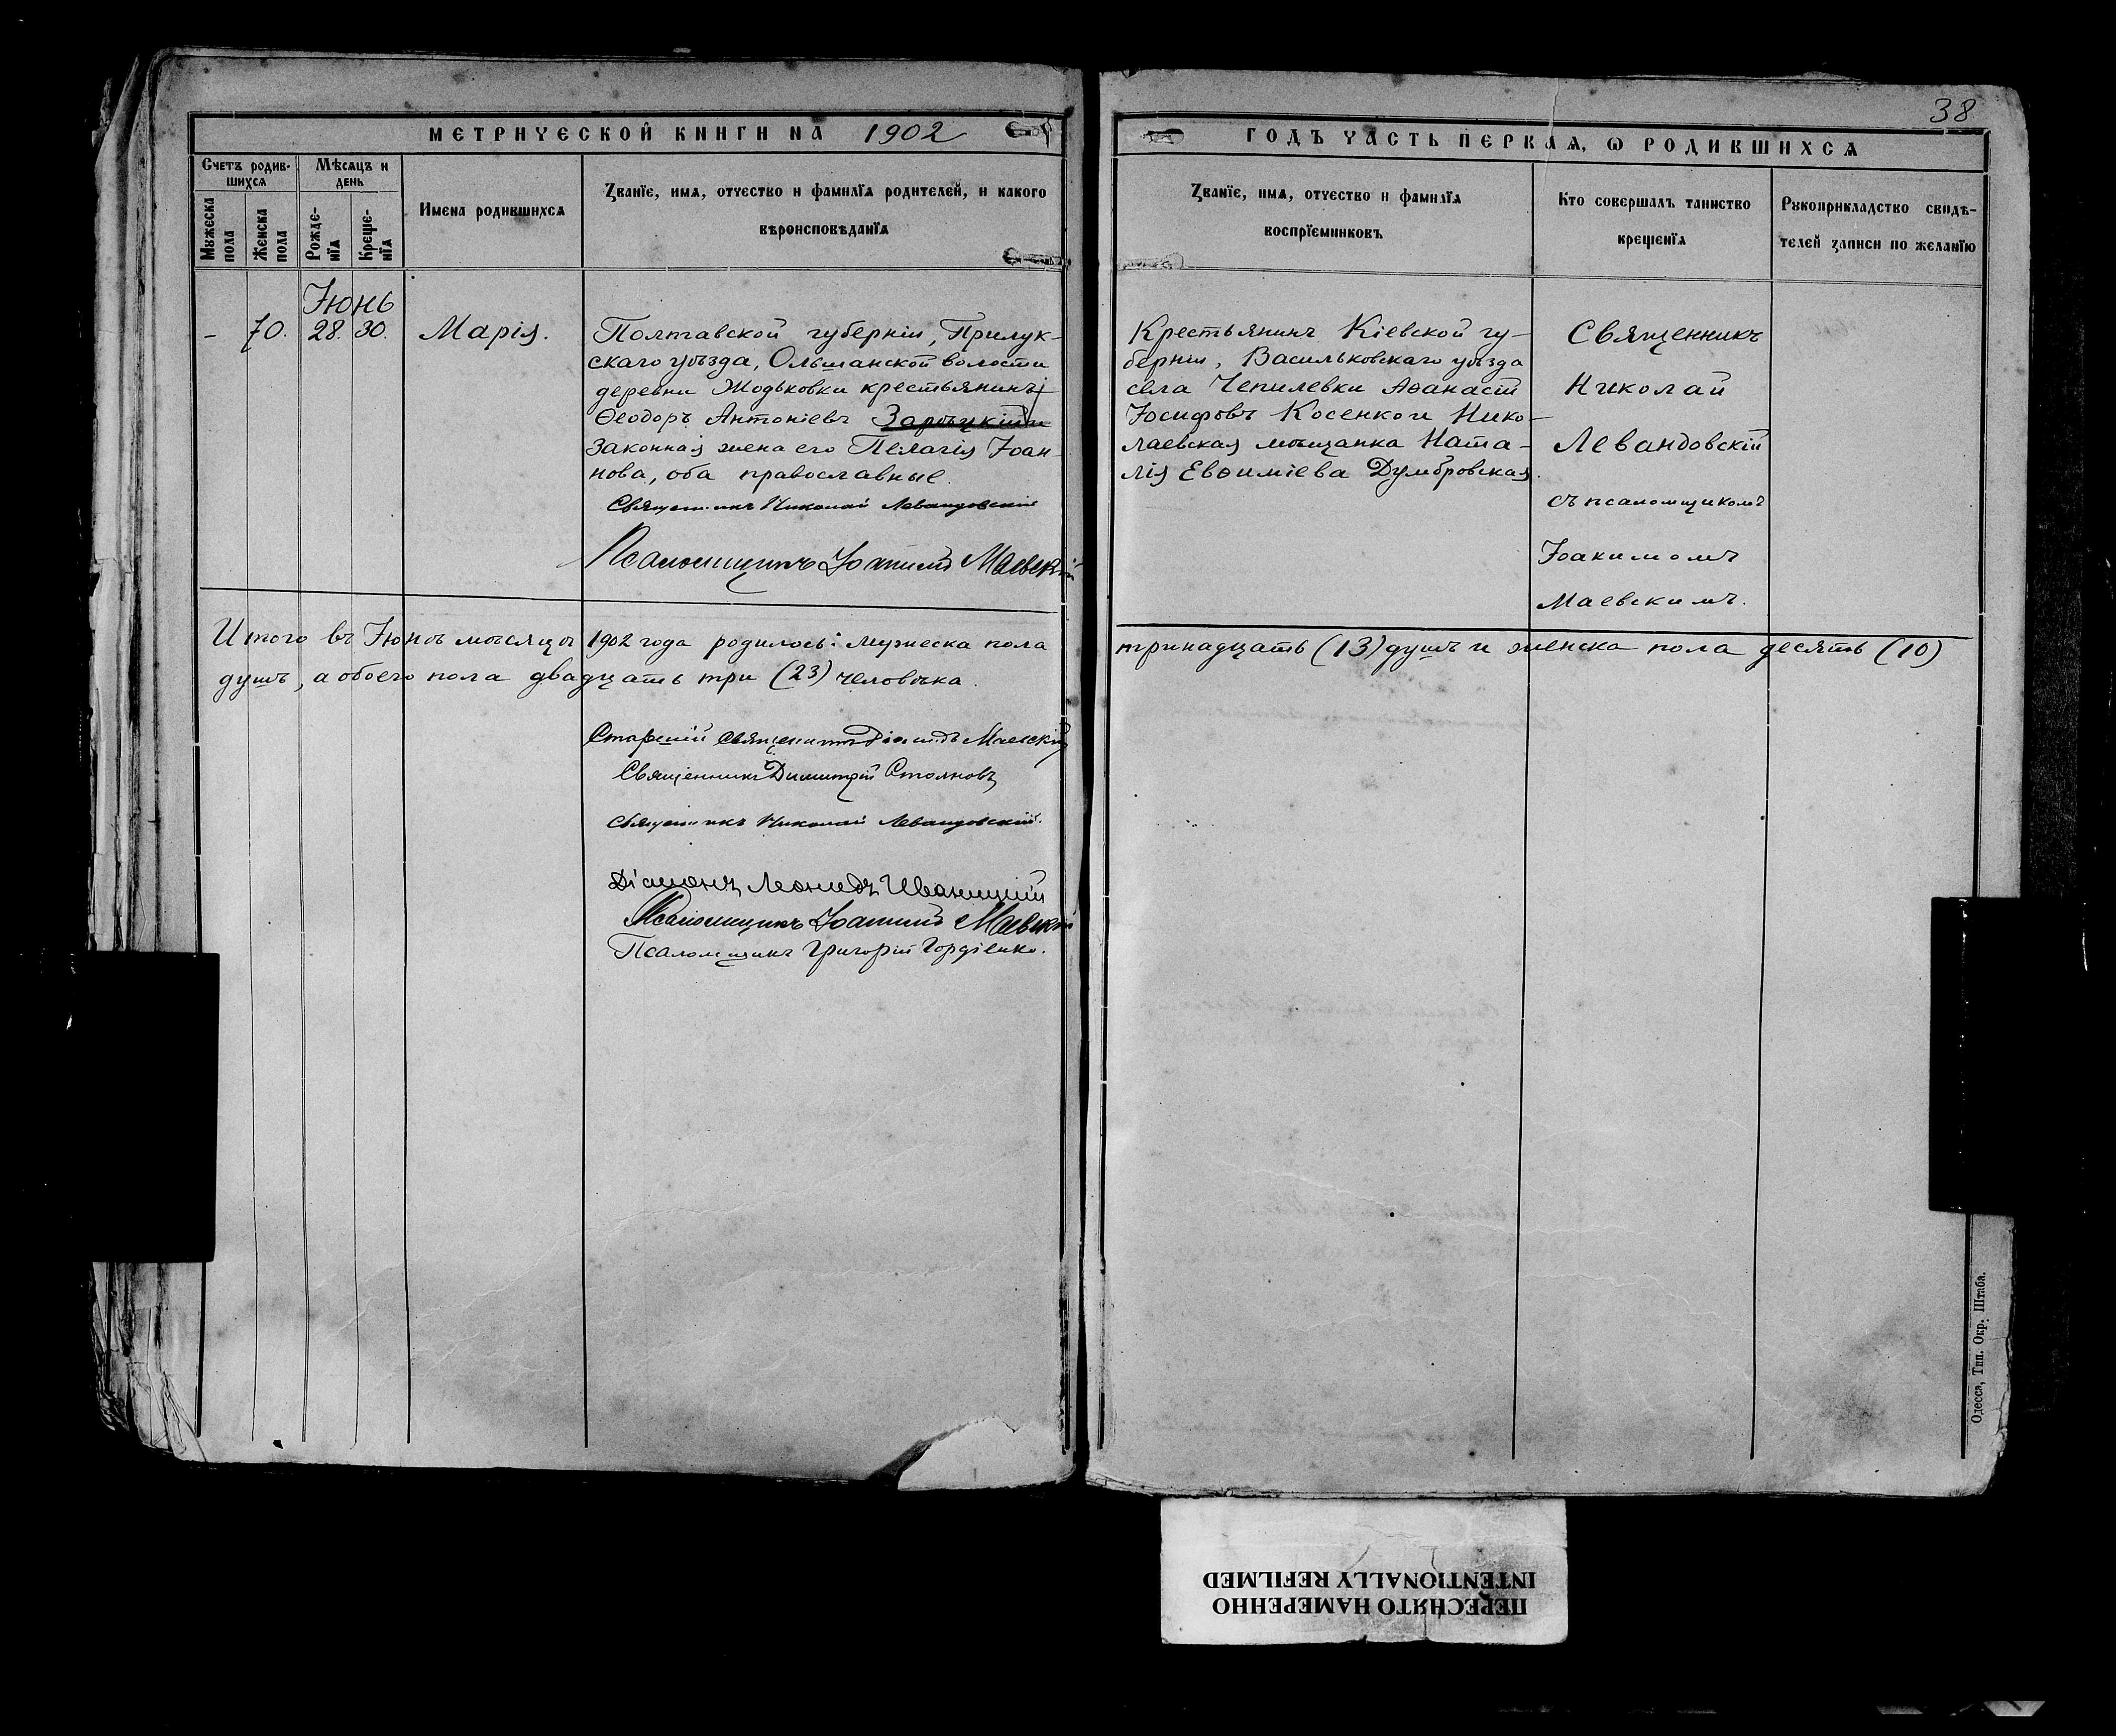 МЕТРИЧЕСКОЙ КНИГИ НА 1902
Счетъ родив-
шихся
Мѣсяцъ и
день
Мужеска
пола
Женска
пола
Рожде-
нїя
Креще-
нїя
Имена родившихся
Званїе, имя, отчество и фамилїя родителей, и какого
вѣроисповѣданїя
Іюнь
- 70. 28. 30. Марія.
Полтавской губерніи, Прилук-
скаго уѣзда, Ольшанской волости
деревни Жодьковки крестьянинъ
Ѳеодоръ Антоніевъ Зарѣцкій и
законная жена его Пелагія Іоан-
нова, оба православные.
Священникъ Николай Левандовскій
Псаломщикъ Іоакимъ Маевскій
Итого въ Іюнѣ мѣсяцѣ 1902 года родилось: мужеска пола
душъ, а обоего пола двадцать три (23) человѣка.
Старшій священникъ Маевскій
Священникъ Димитрій Стояновъ
Священникъ Николай Левандовскій.
Діаконъ Леонидъ Иваницкій
Псаломщикъ Іоакимъ Маевскій
Псаломщикъ Григорій Гордіенко.
38
ГОДЪ ЧАСТЬ ПЕРВАЯ, Ѡ РОДИВШИХСЯ
Званїе, имя, отчество и фамилїя
воспрїемниковъ
Кто совершалъ таинство
крещенїя
Рукоприкладство свидѣ-
телей записи по желанїю
Крестьянинъ Кіевской гу-
берніи, Васильковскаго уѣзда
села Чепилевки Аѳанасій
Іосифовъ Косенко и Нико-
лаевская мѣщанка Ната-
лія Евѳиміева Думбровская.
Священникъ
Николай
Левандовскій
съ псаломщикомъ
Іоакимомъ
Маевскимъ.
тринадцать (13) душъ и женска пола десять (10)
Одесса, Тип. Окр. Штаба.
ПЕРЕСНЯТО НАМЕРЕННО
INTENTIONALLY REFILMED